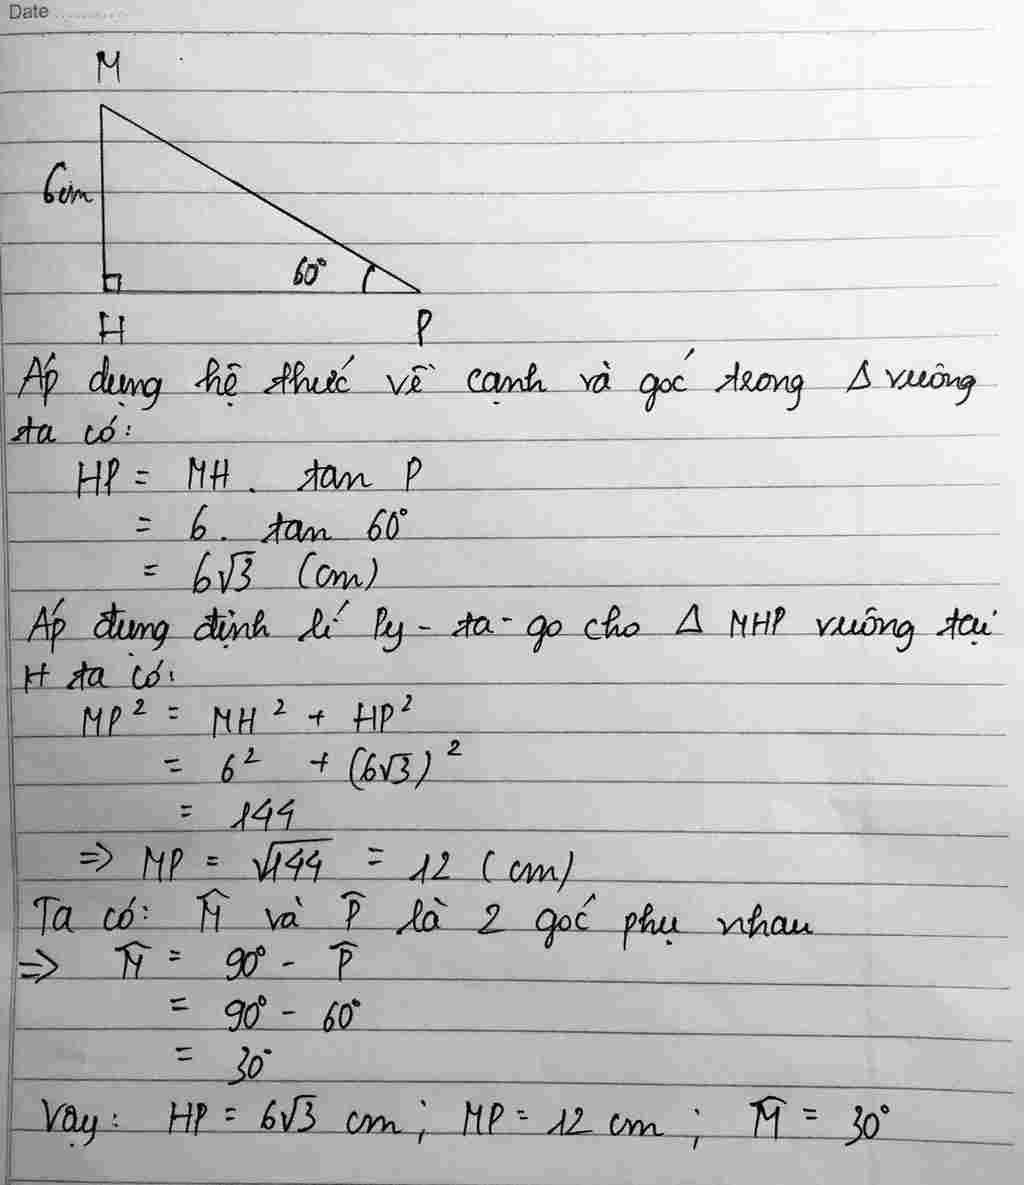 Date
M
6cm
60°
H P
Áp dụng hệ thức về cạnh và góc trong Δ vuông
ta có:
HP = MH . tan P
= 6 . tan 60°
= 6√3 (cm)
Áp đụng định lí Py-ta-go cho Δ MHP vuông tại
H ta có:
MP² = MH² + HP²
= 6² + (6√3)²
= 144
=> MP = √144 = 12 (cm)
Ta có: M̂ và P̂ là 2 góc phụ nhau
=> M̂ = 90° - P̂
= 90° - 60°
= 30°
Vậy: HP = 6√3 cm ; MP = 12 cm ; M̂ = 30°